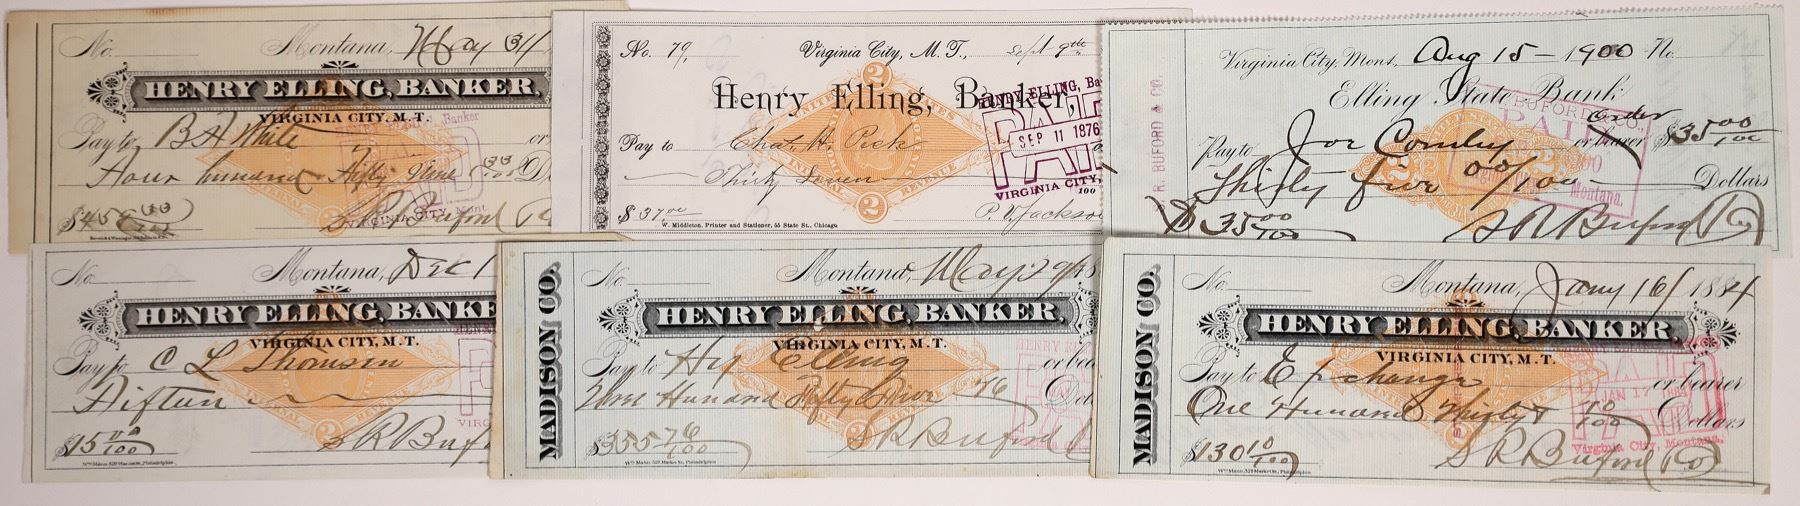 No. Montana, May 31
HENRY ELLING, BANKER,
VIRGINIA CITY, M.T.
Pay to B F White or
Four hundred Fifty Nine 33/100 D
$459 33/100
S R Buford
No. 79 Virginia City, M. T., Sept 9th
Henry Elling, Banker,
Pay to Chas. H. Peck
Thirty Seven
100
$37.00
W. Middleton, Printer and Stationer, 55 State St., Chicago
HENRY ELLING, Ba
PAID
SEP 11 1876
VIRGINIA CITY,
UNITED STATES
2
INTERNAL REVENUE
Virginia City, Mont, Aug 15 - 1900 No.
Elling State Bank
order
Pay to Joe Comly or bearer $35 00/100
Thirty five 00/100 Dollars
$35 00/100
S R Buford & Co
S. R. BUFORD & CO.
PAID
Montana.
No. Montana, Dec 1
HENRY ELLING, BANKE
VIRGINIA CITY, M.T.
Pay to C L Thomson
Fifteen
$15 00/100
S R Buf
Wm Mann, 529 Market St., Philadelphia
MADISON CO.
No. Montana, May 29/18
HENRY ELLING, BANKER,
VIRGINIA CITY, M.T.
Pay to Hy Elling or bea
Three Hundred Fifty Five 76 Dol
$355 76/100
S R Buford
Wm Mann, 529 Market St., Philadelphia
MADISON CO.
No. Montana, Jany 16/ 1884
HENRY ELLING, BANKER,
VIRGINIA CITY, M.T.
Pay to Exchange or bearer
One Hundred Thirty & 10/100 Dollars
$130 10/100
S R Buford & Co
Wm Mann, 529 Market St., Philadelphia
PAID
JAN 17 1884
Virginia City, Montana.